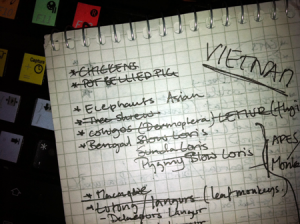 VIETNAM
* CHICKENS
* POT BELLIED PIG
* Elephants Asian
* Tree Shrew
* colugos (Dermoptera) LEMUR (flying
* Bengal Slow Loris
Sunda Loris
Pygmy Slow Loris
APES
Monke
* Macaque
* Lutong / langurs (leaf monkeys)
Delacours Langur